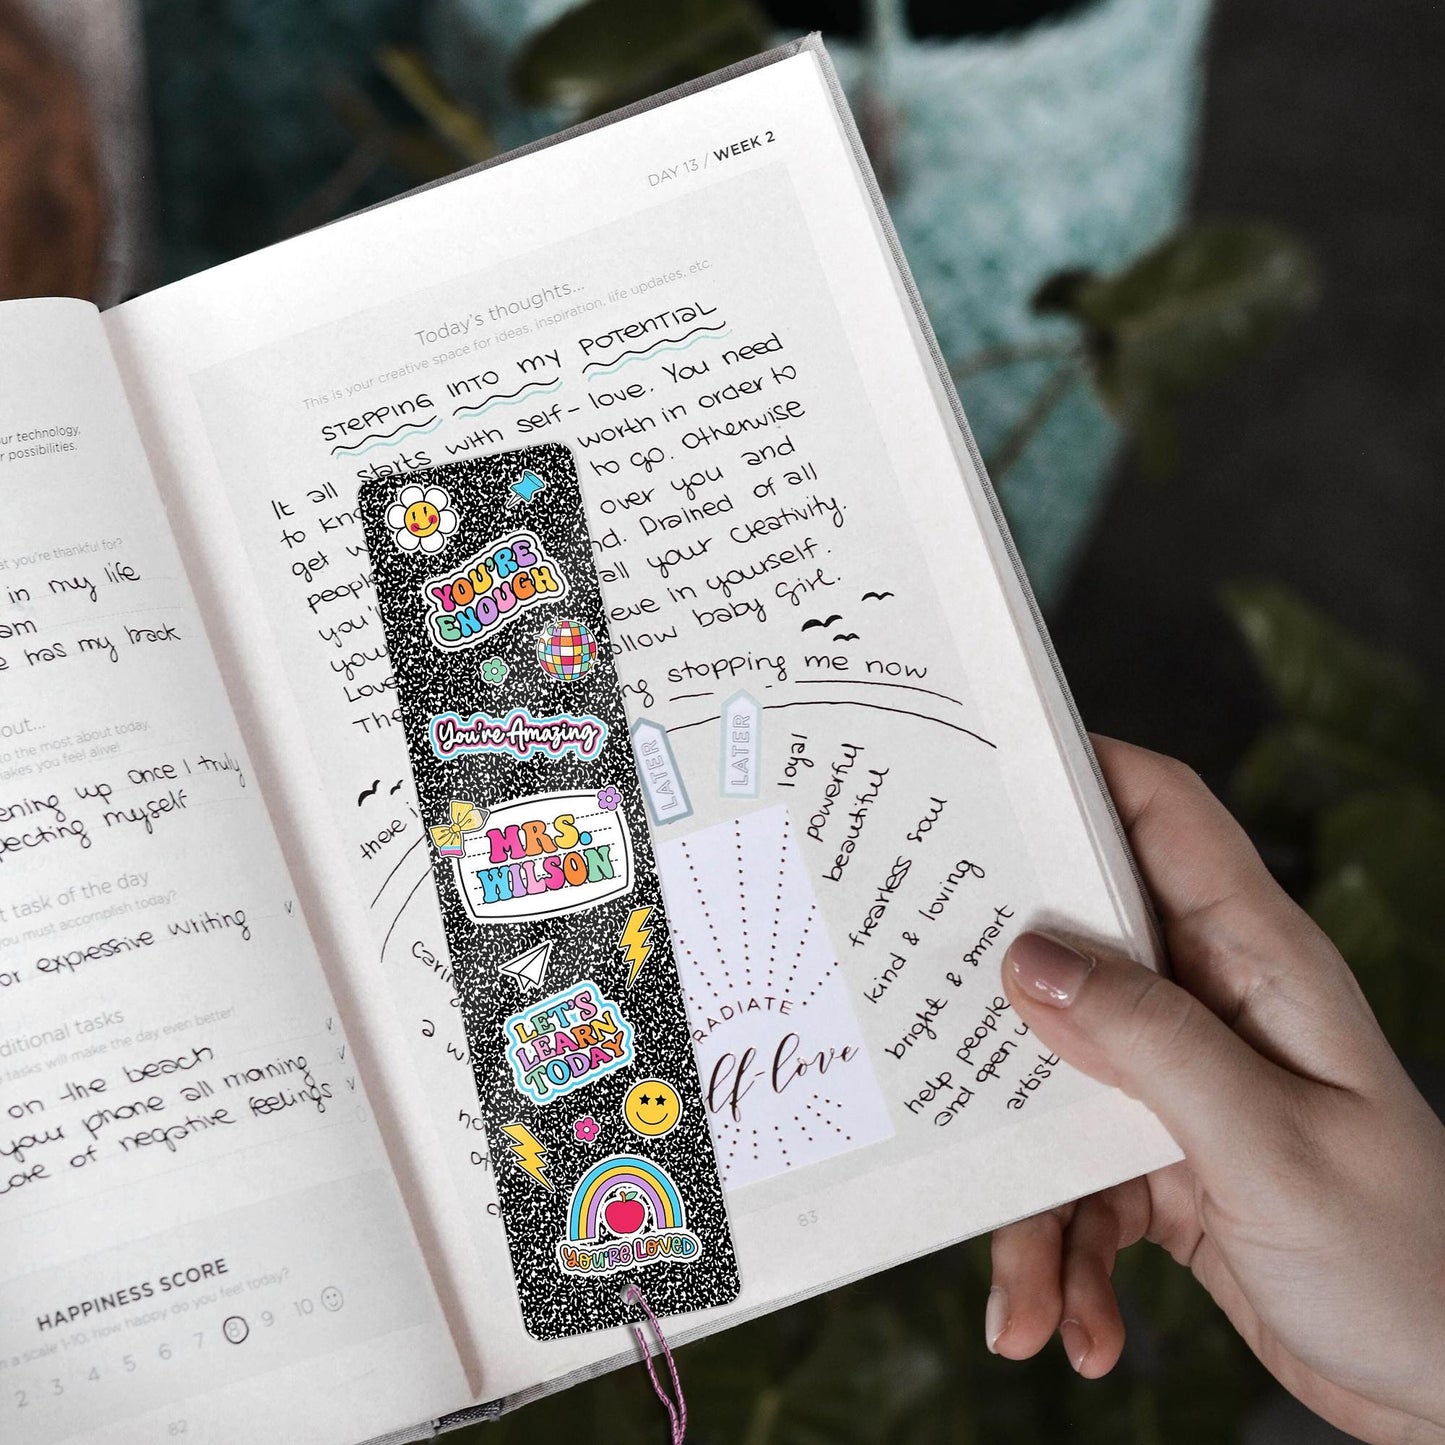 our technology,
r possibilities.
at you're thankful for?
in my life
am
e has my back
out...
to the most about today.
akes you feel alive!
ening up once I truly
pecting myself
t task of the day
you must accomplish today?
or expressive writing
ditional tasks
tasks will make the day even better!
on the beach
your phone all morning
of negative feelings
HAPPINESS SCORE
n a scale 1-10, how happy do you feel today?
2 3 4 5 6 7 8 9 10
82
DAY 13 / WEEK 2
Today's thoughts...
This is your creative space for ideas, inspiration, life updates, etc.
STEPPING INTO MY POTENTIAL
It all starts with self-love. You need
to kno worth in order to
get w to go. Otherwise
people over you and
you'l nd. Drained of all
your all your creativity.
Love eve in yourself.
The ollow baby girl.
there i ng stopping me now
LATER
LATER
loyal
powerful
beautiful
fearless soul
kind & loving
bright & smart
help people
and open u
artist
carin
RADIATE
lf-love
83
YOU'RE
ENOUGH
You're Amazing
MRS.
WILSON
LET'S
LEARN
TODAY
YOU'RE LOVED